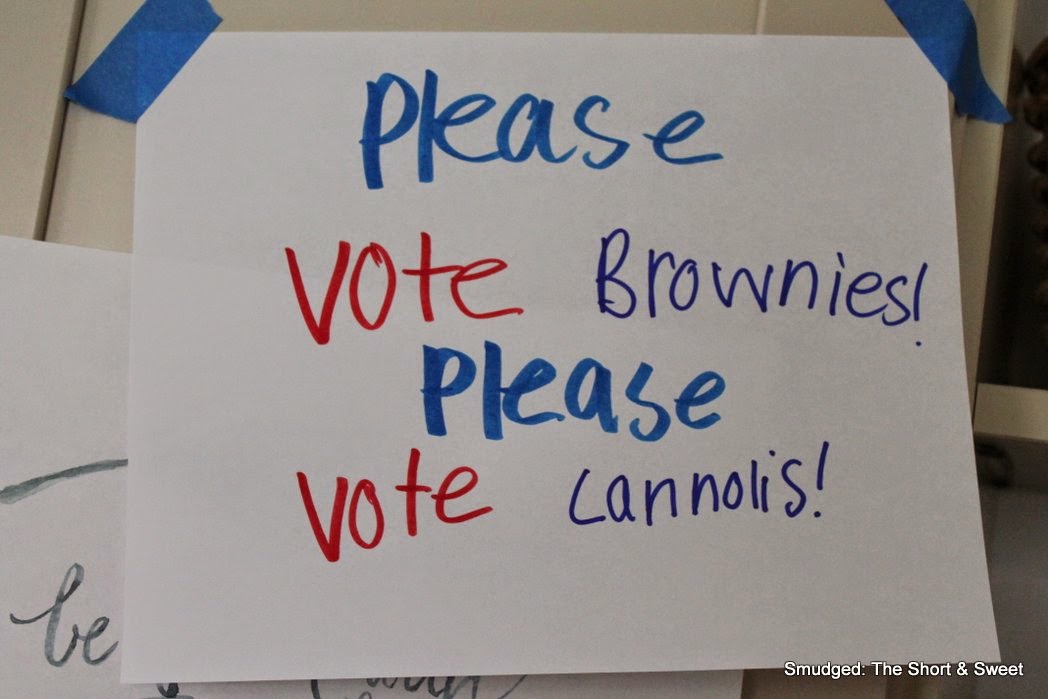 please
vote Brownies!
please
vote cannolis!
be
Smudged: The Short & Sweet